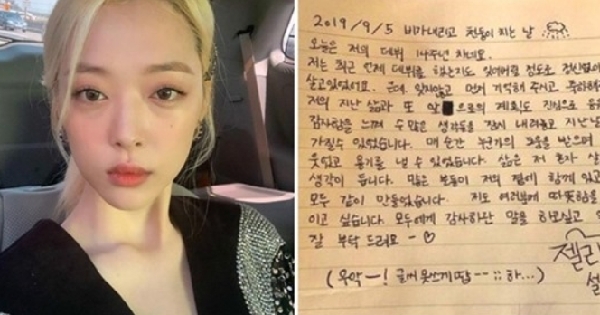 2019/9/5 비가내리고 천둥이 치는 날
오늘은 저의 데뷔 14주년 차네요.
저는 최근 언제 데뷔를 했는지도 잊어버릴 정도로 정신없이
살고있었어요. 근데, 잊지않고 먼저 기억해 주시고 축하해
저의 지난 삶과 또 앞으로의 계획도 진심으로 응원
감사함을 느껴 수 많은 생각들을 잠시 내려놓고 지난날
가질수 있었습니다. 매 순간 누군가의 도움을 받으며
웃었고 용기를 낼 수 있었습니다. 삶은 저 혼자 살
생각이 듭니다. 많은 분들이 저의 곁에 함께 있고
모두 같이 만들었습니다. 저도 여러분께 따뜻함을
이고 싶습니다. 모두에게 감사하단 말을 하고싶고
질 부탁 드려요 ~ ♡
젤리
설
( 우악 ㅡ! 글씨 못쓰게땁 -- ;; 하...)